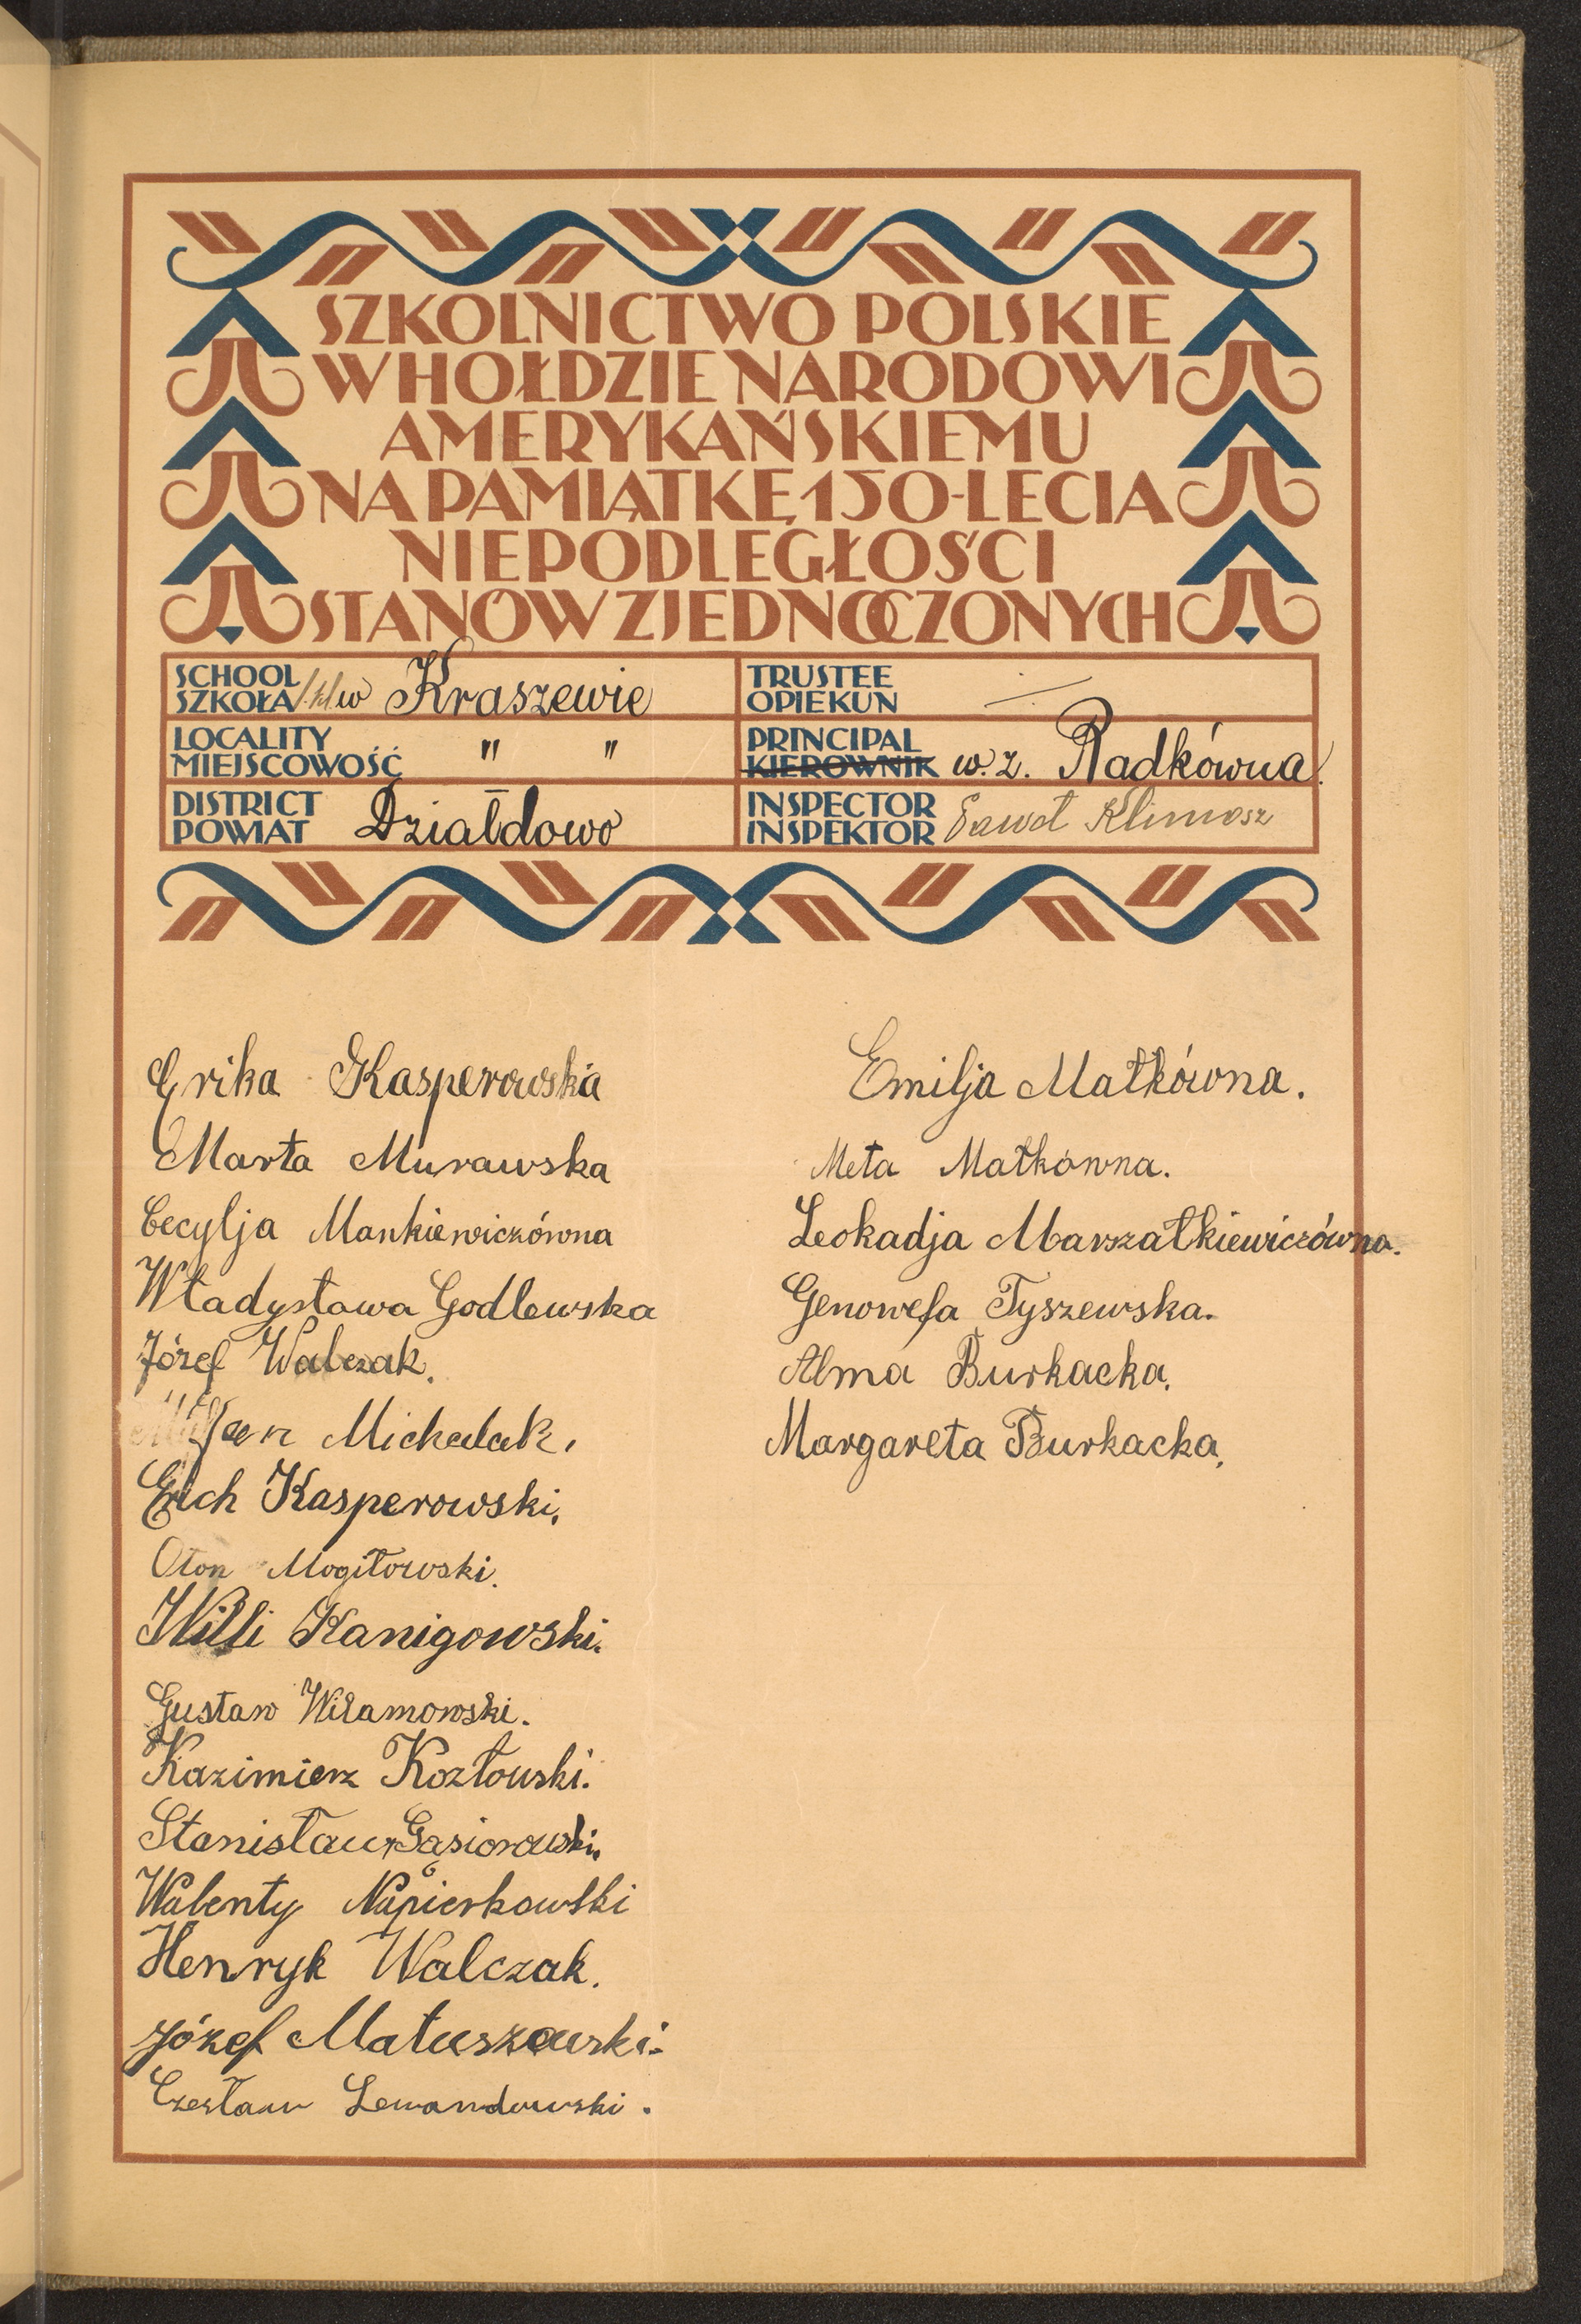 SZKOLNICTWO POLSKIE
W HOŁDZIE NARODOWI
AMERYKAŃSKIEMU
NA PAMIĄTKĘ 150-LECIA
NIEPODLEGŁOŚCI
STANÓW ZJEDNOCZONYCH
SCHOOL
SZKOŁA w Kraszewie
TRUSTEE
OPIEKUN —
LOCALITY
MIEJSCOWOŚĆ " "
PRINCIPAL
KIEROWNIK w. z. Radkówna
DISTRICT
POWIAT Działdowo
INSPECTOR
INSPEKTOR Paweł Klimosz
Erika Kasperowska
Marta Murawska
Cecylja Mankiewiczówna
Władysława Godlewska
Józef Walczak.
Jan Michalak.
Erich Kasperowski.
Oton Mogiłowski.
Willi Kanigowski.
Gustaw Wilamowski.
Kazimierz Kozłowski.
Stanisław Gąsiorowski.
Walenty Napierkowski
Henryk Walczak.
Józef Matuszewski.
Czesław Lewandowski.
Emilja Małkówna.
Meta Małkówna.
Leokadja Marszałkiewiczówna.
Genowefa Tyszewska.
Alma Burkacka.
Margareta Burkacka.